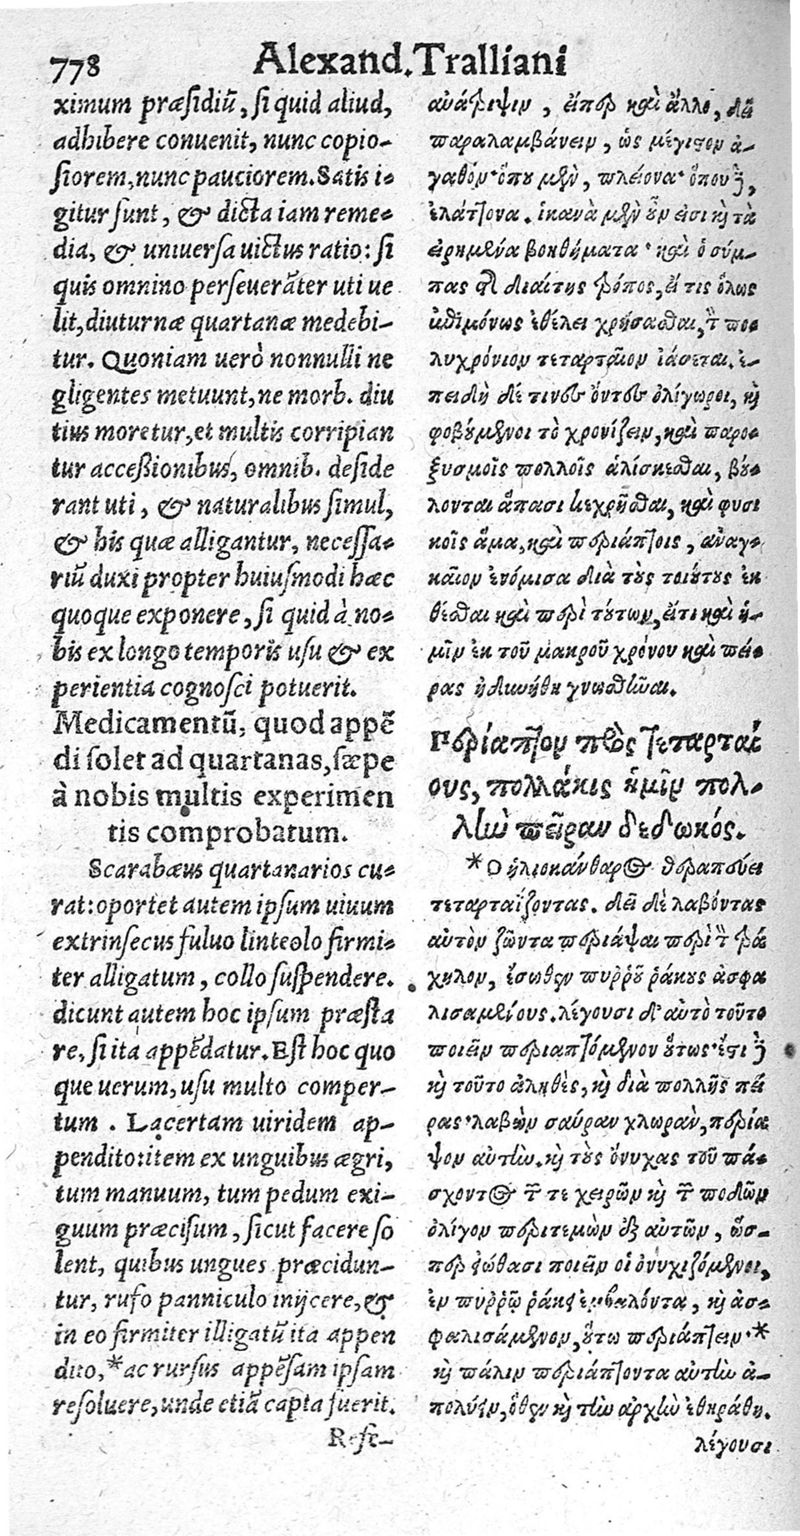 778 Alexand. Tralliani
ximum præsidiũ, si quid aliud,
adhibere conuenit, nunc copio-
siorem, nunc pauciorem. Satis i-
gitur sunt, & dicta iam reme-
dia, & uniuersa uictus ratio: si
quis omnino perseuerãter uti ue
lit, diuturnæ quartanæ medebi-
tur. Quoniam uerò nonnulli ne
gligentes metuunt, ne morb. diu
tius moretur, et multis corripian
tur accessionibus, omnib. deside
rant uti, & naturalibus simul,
& his quæ alligantur, necessa-
riũ duxi propter huiusmodi hæc
quoque exponere, si quid à no-
bis ex longo temporis usu & ex
perientia cognosci potuerit.
Medicamentũ, quod appẽ
di solet ad quartanas, sæpe
à nobis multis experimen
tis comprobatum.
Scarabæus quartanarios cu-
rat: oportet autem ipsum uiuum
extrinsecus fuluo linteolo firmi-
ter alligatum, collo suspendere.
dicunt autem hoc ipsum præsta
re, si ita appẽdatur. Est hoc quo
que uerum, usu multo comper-
tum. Lacertam uiridem ap-
pendito: item ex unguibus ægri,
tum manuum, tum pedum exi-
guum præcisum, sicut facere so
lent, quibus ungues præcidun-
tur, rufo panniculo inijcere, &
in eo firmiter illigatũ ita appen
dito, *ac rursus appẽsam ipsam
resoluere, unde etiã capta fuerit.
Rese-
ἀνάτριψιν, εἴπερ καὶ ἄλλο, δεῖ
παραλαμβάνειν, ὡς μέγιστον ἀ-
γαθόν· ὅπου μὲν, πλείονα· ὅπου δὲ,
ἐλάττονα. ἱκανὰ μὲν οὖν εἰσι καὶ τὰ
εἰρημένα βοηθήματα· καὶ ὁ σύμ-
πας τῆς διαίτης τρόπος, εἴ τις ὅλως
ἐπιμόνως ἐθέλει χρήσασθαι, τὸν πο-
λυχρόνιον τεταρταῖον ἰάσεται. ἐ-
πειδὴ δέ τινες ὄντες ὀλίγωροι, καὶ
φοβούμενοι τὸ χρονίζειν, καὶ παρο-
ξυσμοῖς πολλοῖς ἁλίσκεσθαι, βού-
λονται ἅπασι κεχρῆσθαι, καὶ φυσι
κοῖς ἅμα, καὶ περιάπτοις, ἀναγ-
καῖον ἐνόμισα διὰ τοὺς τοιούτους ἐκ
θέσθαι καὶ περὶ τούτων, εἴ τι καὶ ἡ-
μῖν ἐκ τοῦ μακροῦ χρόνου καὶ πεί-
ρας ἠδυνήθη γνωσθῆναι.
Περίαπτον πρὸς τεταρταί
ους, πολλάκις ἡμῖν πολ-
λὴν πεῖραν δεδωκός.
*Ο ἡλιοκάνθαρος θεραπεύει
τεταρταΐζοντας. δεῖ δὲ λαβόντας
αὐτὸν ζῶντα περιάψαι περὶ τὸν τρά
χηλον, ἔσωθεν πυῤῥοῦ ῥάκους ἀσφα
λισαμένους. λέγουσι δ' αὐτὸ τοῦτο
ποιεῖν περιαπτόμενον οὕτως· ἔστι δὲ
καὶ τοῦτο ἀληθὲς, καὶ διὰ πολλῆς πεί
ρας· λαβὼν σαύραν χλωρὰν, περία
ψον αὐτὴν. καὶ τοὺς ὄνυχας τοῦ πά-
σχοντος τῶν τε χειρῶν καὶ τῶν ποδῶν
ὀλίγον περιτεμὼν ἐξ αὐτῶν, ὥσ-
περ εἰώθασι ποιεῖν οἱ ὀνυχιζόμενοι,
ἐν πυῤῥῷ ῥάκει ἐμβαλόντα, καὶ ἀσ-
φαλισάμενον, οὕτω περιάπτειν·*
καὶ πάλιν περιάπτοντα αὐτὴν ἀ-
πολύειν, ὅθεν καὶ τὴν ἀρχὴν ἐθηράθη.
λέγουσι